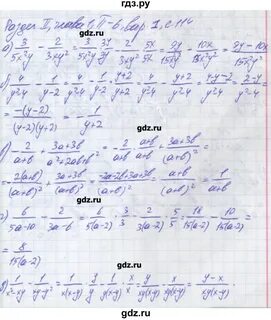 Раздел II, глава 1, П-6, вар 1, с.114
а) 3/5x²y - 2/3xy² = 3/5x²y · 3y/3y - 2/3xy² · 5x/5x = 9y/15x²y² - 10x/15x²y² = 9y-10x/15x²y²
б) 4/y²-4 - 1/y-2 = 4/y²-4 - (y+2)/y²-4 = 4-y-2/y²-4 = 2-y/y²-4 =
= -(y-2)/(y-2)(y+2) = -1/y+2
в) -2/a+b + 3a+3b/a²+2ab+b² = -2/a+b + 3a+3b/(a+b)² =
= -2(a+b)/(a+b)² + 3a+3b/(a+b)² = -2a-2b+3a+3b/(a+b)² = a+b/(a+b)² = 1/a+b
г) 6/5a-10 - 2/3a-6 = 6/5(a-2) · 3/3 - 2/3(a-2) · 5/5 = 18/15(a-2) - 10/15(a-2) =
= 8/15(a-2)
д) 1/x²-xy - 1/xy-y² = 1/x(x-y) · y/y - 1/y(x-y) · x/x = y/xy(x-y) - x/xy(x-y) = y-x/xy(x-y)